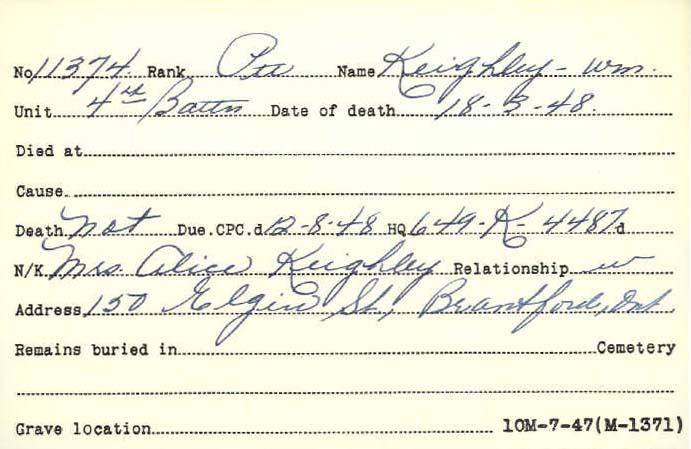 No 11374. Rank Pte Name Keighley - Wm.
Unit 4th Battn Date of death 18-3-48.
Died at
Cause.
Death not Due.CPC.d 12-8-48 HQ 649-K-4487d
N/K. Mrs. Alice Keighley Relationship w
Address 150 Elgin St., Brantford, Ont.
Remains buried in Cemetery
Grave location 10M-7-47(M-1371)